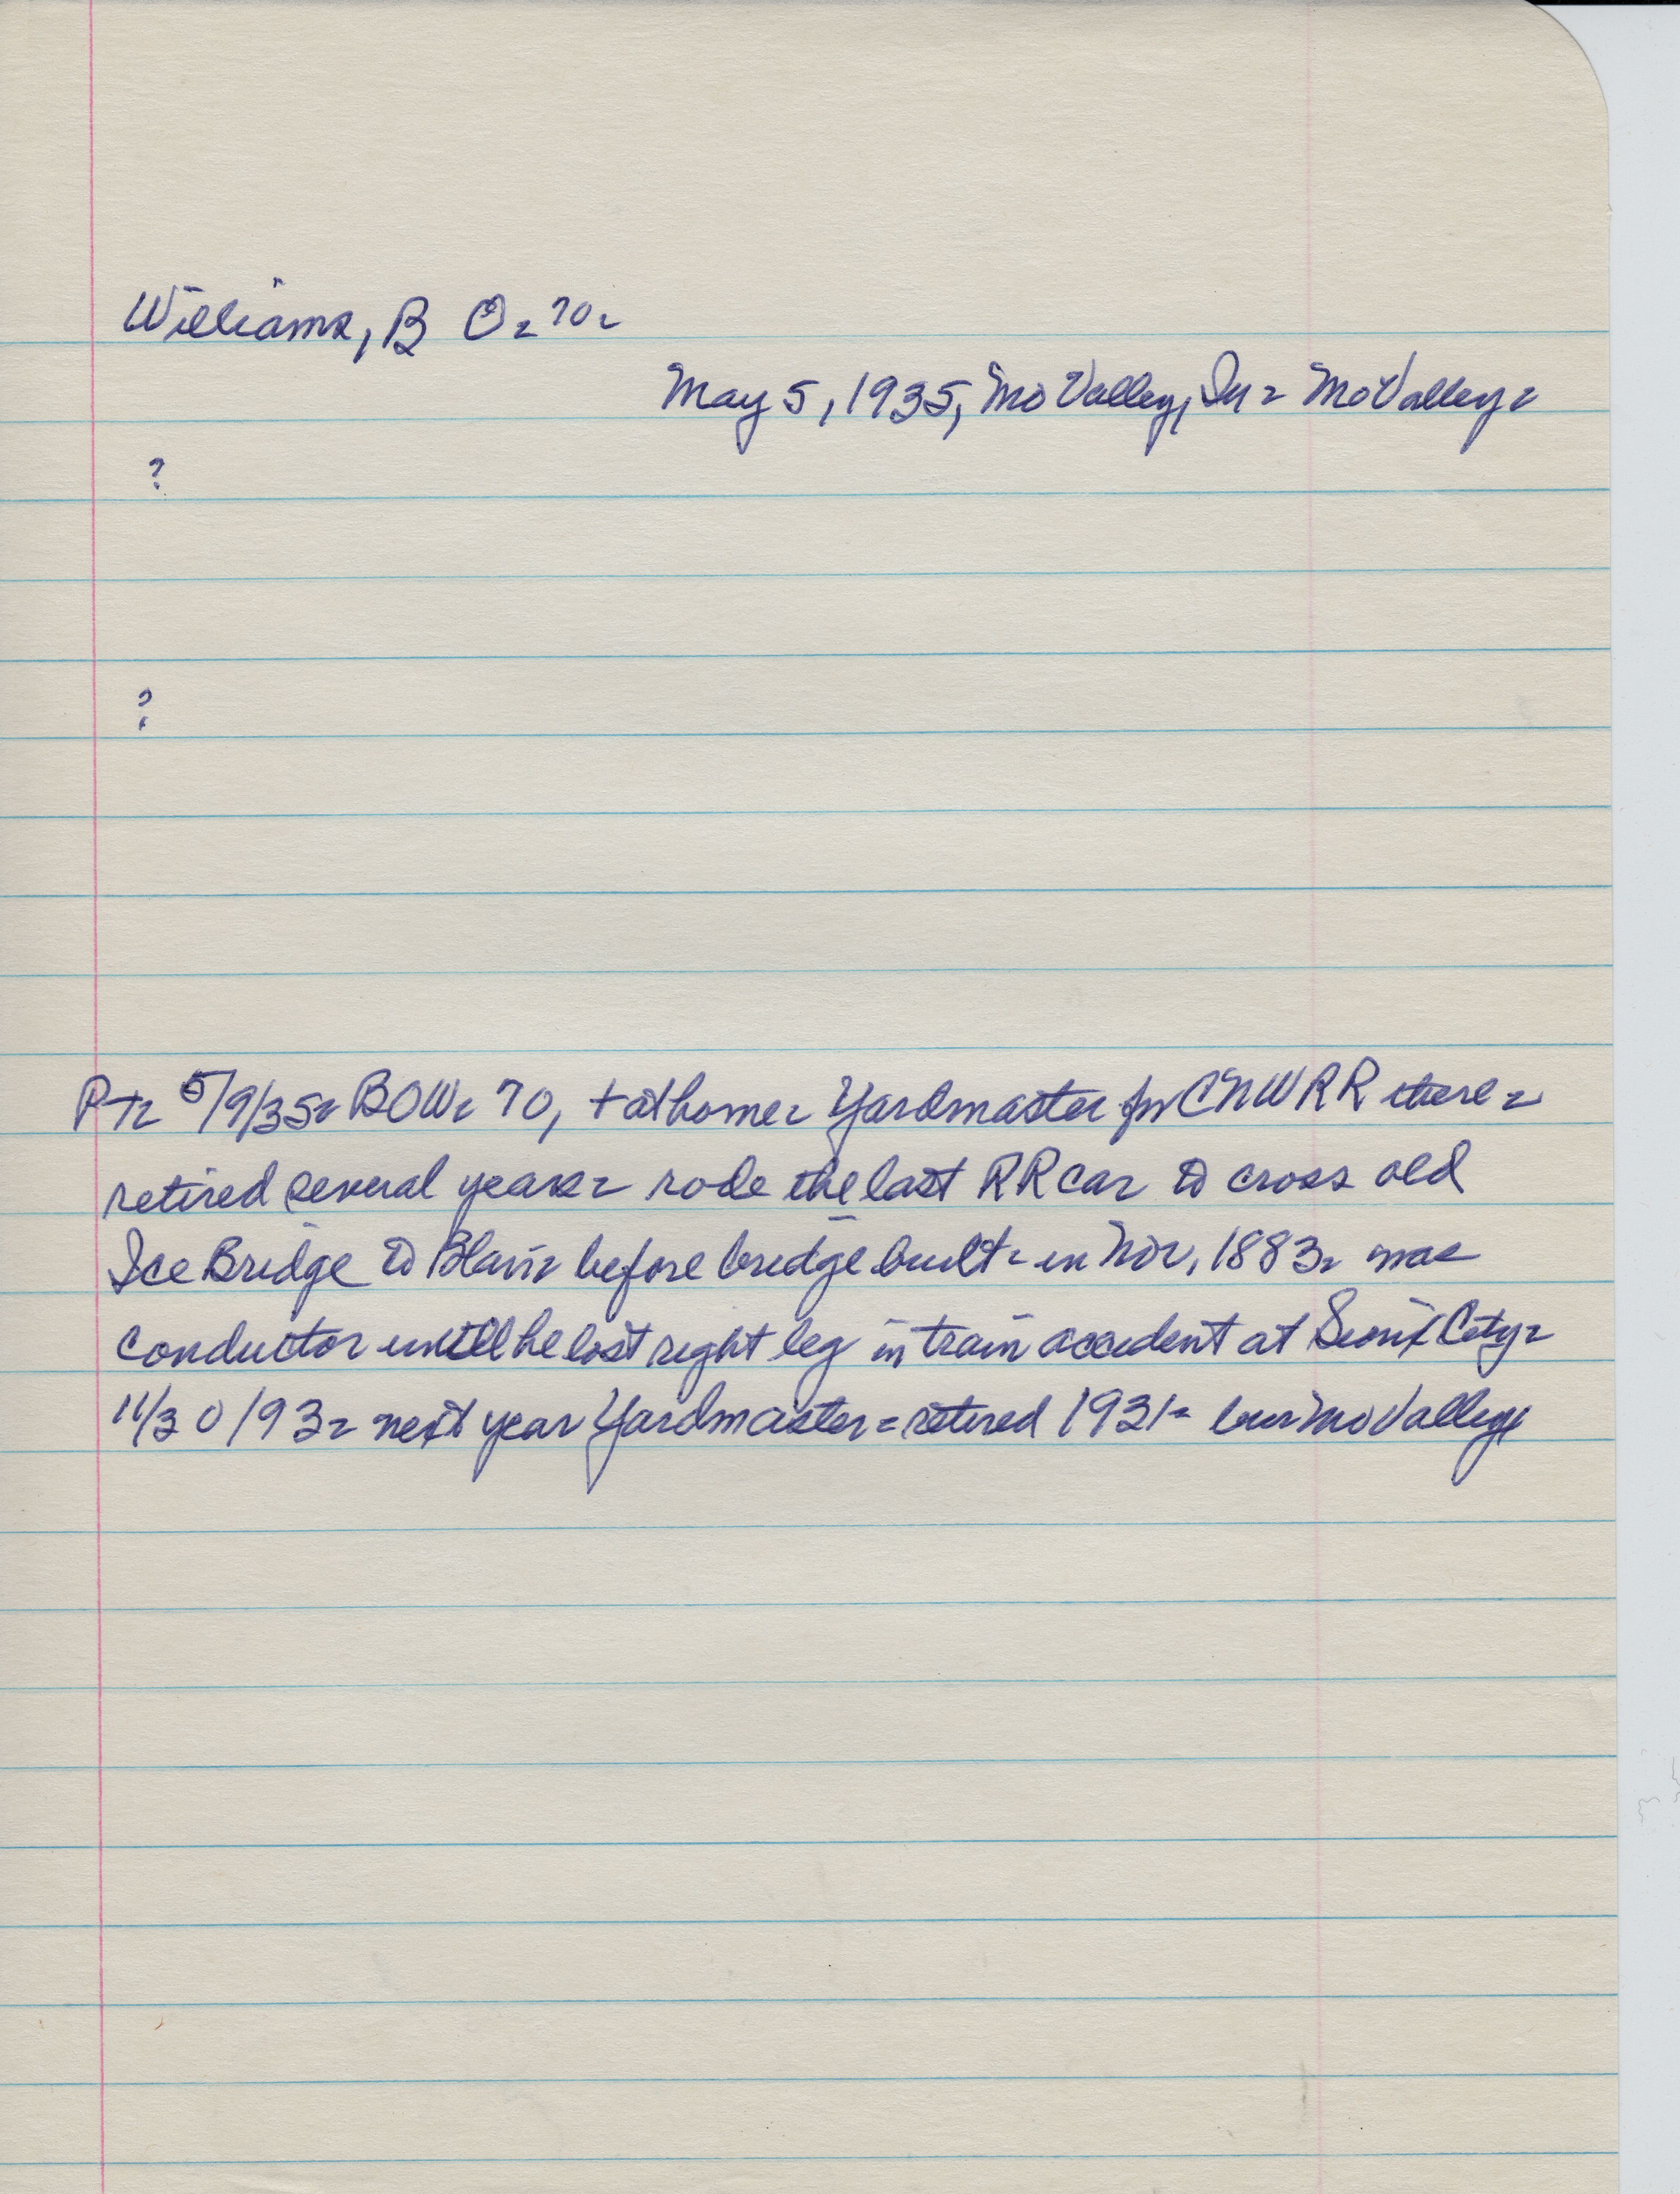 Williams, B O = 70 =
May 5, 1935, Mo Valley, Ia = Mo Valley =
?
?
P+T= 5/9/35= BOW= 70, + at home= Yardmaster for CNWRR there=
retired several years= rode the last RR car to cross old
Ice Bridge to Blair= before bridge built= in Nov, 1883= was
conductor untill he lost right leg in train accident at Sioux City=
11/30/93= next year Yardmaster= retired 1931= bur Mo Valley